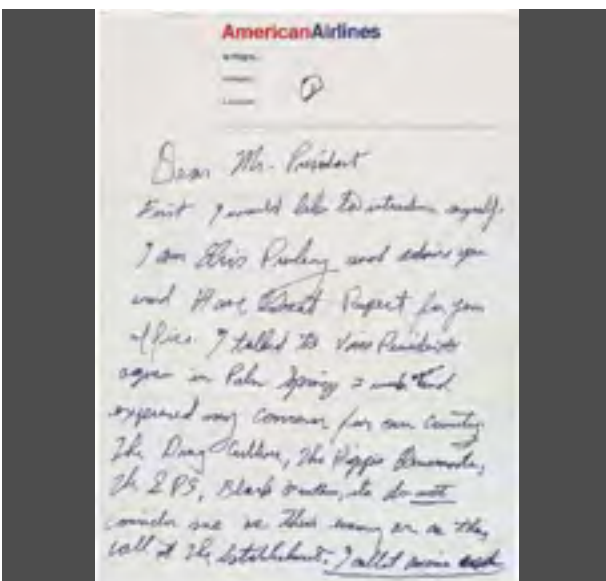 AmericanAirlines
Dear Mr. President
First I would like to introduce myself.
I am Elvis Presley and admire you
and Have Great Respect for your
office. I talked to Vice President
agnew in Palm Springs 3 and
expressed my concern for our country
The Drug Culture, The Hippie Elements,
The SDS, Black Panthers, etc do not
consider me as their enemy or as they
call it The Establishment. I call it